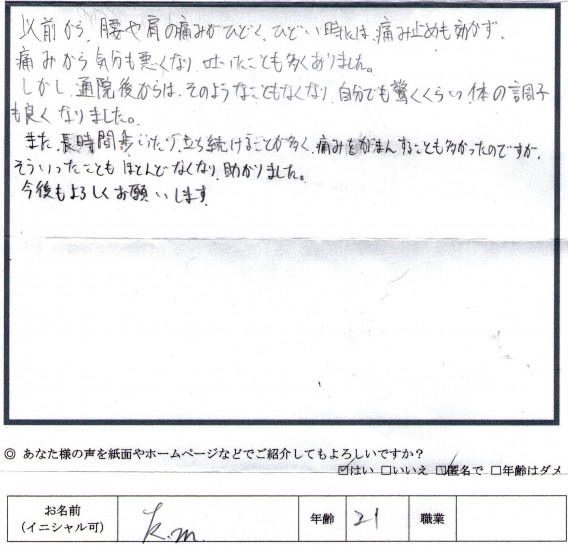 以前から、腰や肩の痛みがひどく、ひどい時には、痛み止めも効かず、
痛みから気分も悪くなり、吐いたことも多くありました。
しかし、通院後からは、そのようなこともなくなり、自分でも驚くくらい、体の調子
も良くなりました。
また、長時間歩いたり、立ち続けることが多く、痛みをがまんすることも多かったのですが、
そういったこともほとんどなくなり、助かりました。
今後もよろしくお願いします
◎ あなた様の声を紙面やホームページなどでご紹介してもよろしいですか？
☑はい □いいえ ☑匿名で □年齢はダメ
お名前 k.m. 年齢 21 職業
(イニシャル可)